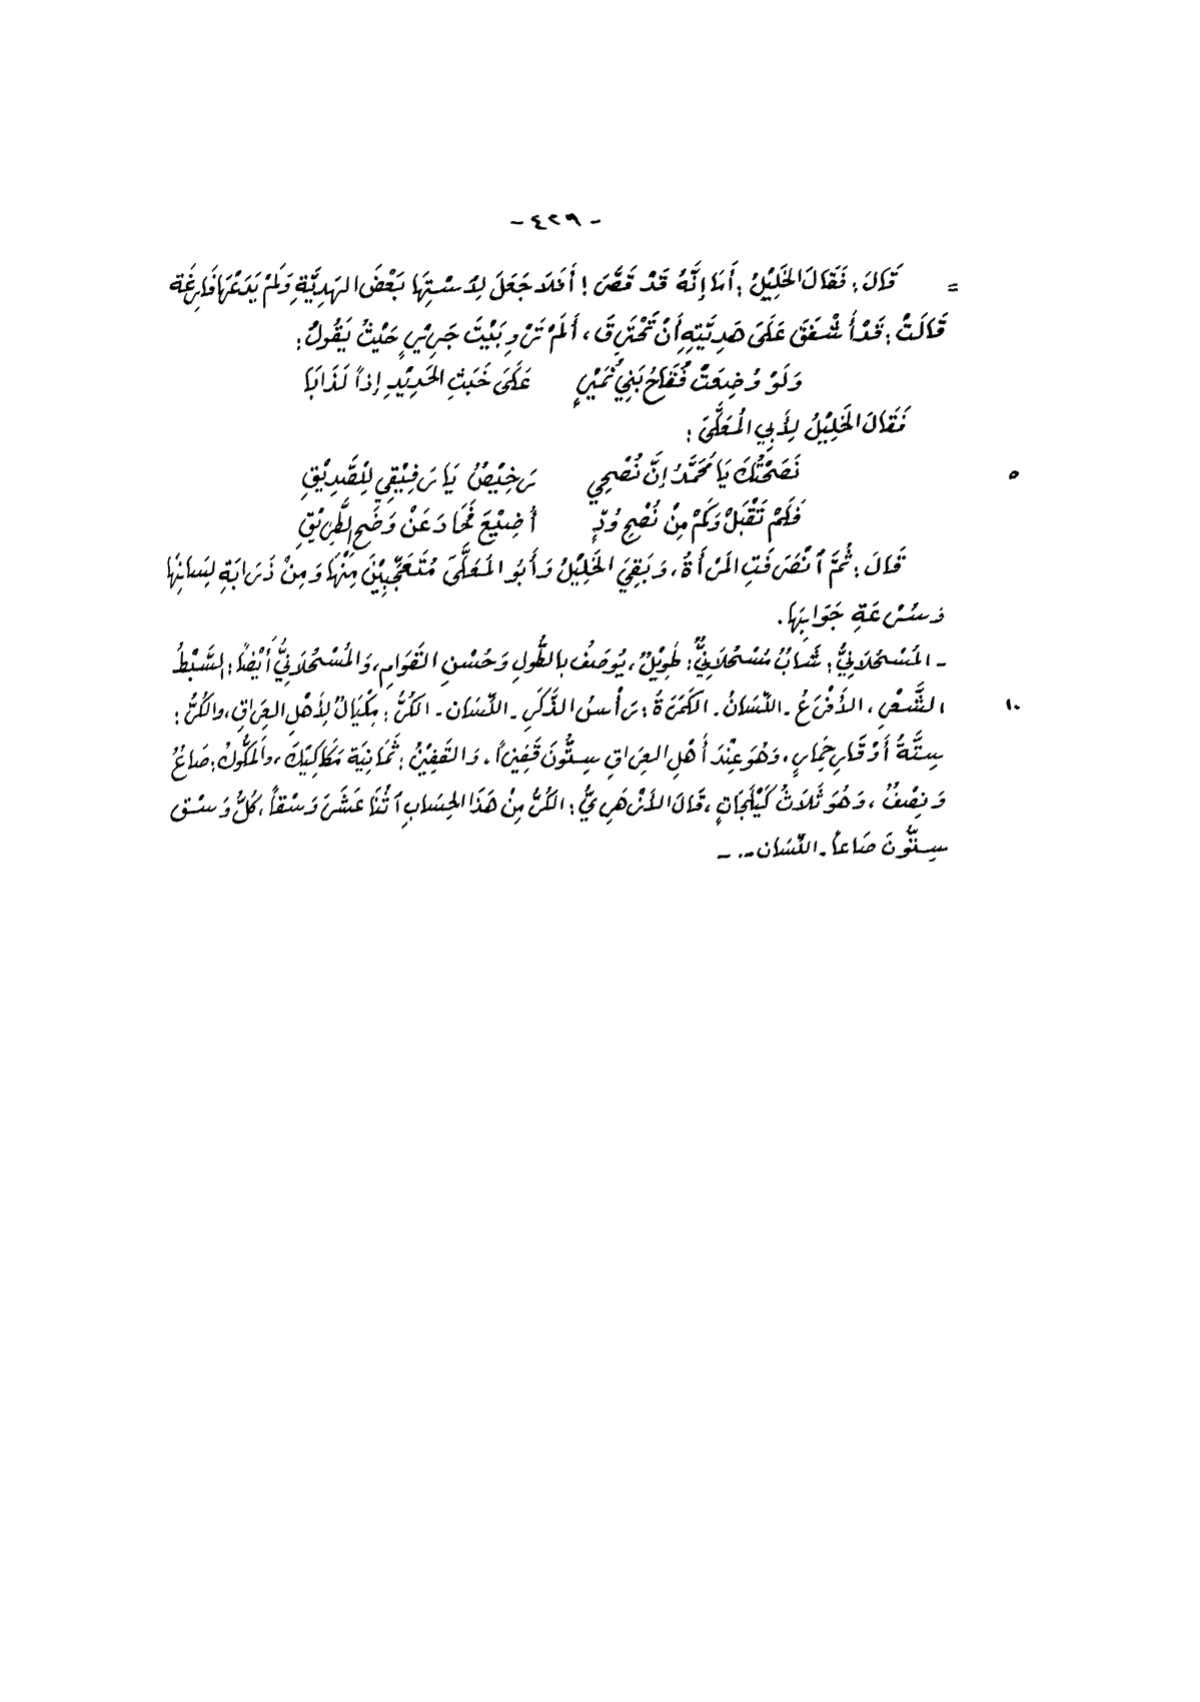 - ٤٢٩ -
= قَالَ: فَقَالَ الخَلِيْلُ: أَمَا إِنَّهُ قَدْ قَصَّرَ! أَفَلَا جَعَلَ لِاسْتِهَا بَعْضَ الهَدِيَّةِ وَلَمْ يَدَعْهَا فَارِغَة
قَالَتْ: قَدْ أَشْفَقَ عَلَى هَدِيَّتِهِ أَنْ تَحْتَرِقَ، أَلَمْ تَرْوِ بَيْتَ جَرِيْرٍ حَيْثُ يَقُولُ:
وَلَوْ وُضِعَتْ فُقَاحُ بَنِي نُمَيْرٍ عَلَى خَبَثِ الحَدِيْدِ إِذاً لَذَابَا
فَقَالَ الخَلِيْلُ لِأَبِي المُعَلَّى:
نَصَحْتُكَ يَا مُحَمَّدُ إِنَّ نُصْحِي رَخِيْصٌ يَا رَفِيْقِي لِلصَّدِيْقِ ٥
فَلَمْ تَقْبَلْ وَكَمْ مِنْ نُصْحِ وُدٍّ أُضِيْعَ فَحَادَ عَنْ وَضَحِ الطَّرِيْقِ
قَالَ: ثُمَّ ٱنْصَرَفَتِ المَرْأَةُ، وَبَقِيَ الخَلِيْلُ وَأَبُو المُعَلَّى مُتَعَجِّبِيْنَ مِنْهَا وَمِنْ ذَرَابَةِ لِسَانِهَا
وَسُرْعَةِ جَوَابِهَا.
- المُسْحُلَانِيُّ: شَابٌ مُسْحُلَانِيٌّ: طَوِيْلٌ، يُوصَفُ بِالطُّولِ وَحُسْنِ القَوَامِ، وَالمُسْحُلَانِيُّ أَيْضاً: السَّبْطُ
الشَّعْرِ، الأَفْرَعُ - اللِّسَانُ - الكَمَرَةُ: رَأْسُ الذَّكَرِ - اللِّسَان - الكُرُّ: مِكْيَالٌ لِأَهْلِ العِرَاقِ، والكُرُّ: ١٠
سِتَّةُ أَوْقَارِ حِمَارٍ، وَهُوَ عِنْدَ أَهْلِ العِرَاقِ سِتُّونَ قَفِيْزاً، وَالقَفِيْزُ: ثَمَانِيَة مَكَاكِيْكَ، وَالمَكُّوكُ: صَاعٌ
وَنِصْفٌ، وَهُوَ ثَلَاثُ كَيْلَجَاتٍ، قَالَ الأَزْهَرِيُّ: الكُرُّ مِنْ هَذَا الحِسَابِ ٱثْنَا عَشَرَ وَسْقاً، كُلُّ وَسْقٍ
سِتُّونَ صَاعاً - اللِّسَان -. -